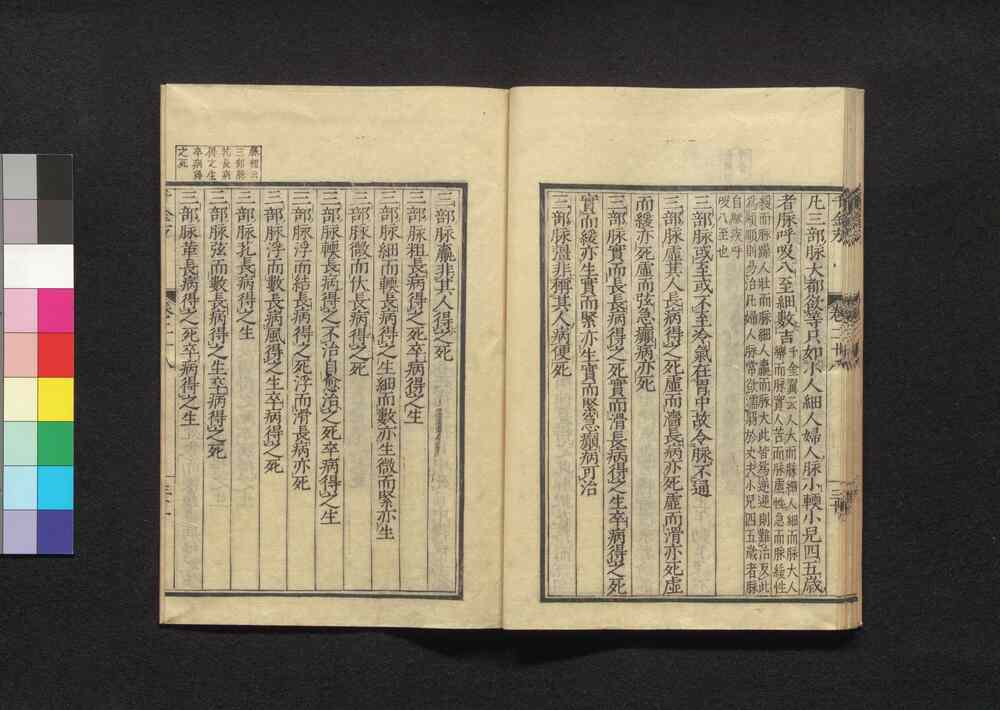 凡三部脉大都欲等只如小人細人婦人脉小輭小兒四五歳
者脉呼吸八至細數吉
千金翼云人大而脉細人細而脉大人
樂而脉實人苦而脉虚性急而脉緩性
緩而脉躁人壯而脉細人羸而脉大此皆爲逆逆則難治反此
爲順順則易治凡婦人脉常欲濡弱於丈夫小兒四五歳者脉
自駃疾呼
吸八至也
三部脉或至或不至冷氣在胃中故令脉不通
三部脉虚其人長病得之死虚而濇長病亦死虚而滑亦死虚
而緩亦死虚而弦急癲病亦死
三部脉實而長長病得之死實而滑長病得之生卒病得之死
實而緩亦生實而緊亦生實而緊急癲病可治
三部脉彊非稱其人病便死
三部脉羸非其人得之死
三部脉粗長病得之死卒病得之生
三部脉細而輭長病得之生細而數亦生微而緊亦生
三部脉微而伏長病得之死
三部脉輭長病得之不治自愈治之死卒病得之生
三部脉浮而結長病得之死浮而滑長病亦死
三部脉浮而數長病風得之生卒病得之死
三部脉芤長病得之生
三部脉弦而數長病得之生卒病得之死
三部脉革長病得之死卒病得之生
脉經云
三部脉
芤長病
得之生
卒病得
之死
卷二十八